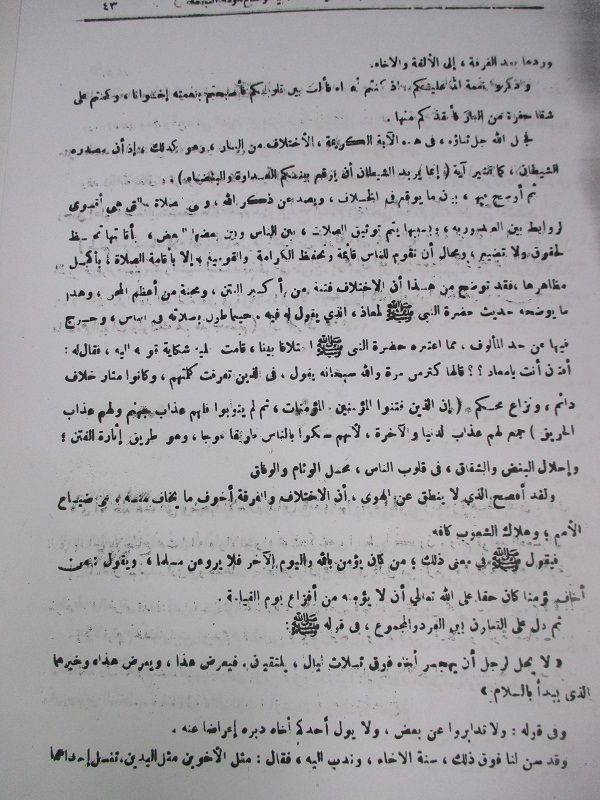 ٤٣
وردها بعد الفرقة ، إلى الألفة والاخاء.
واذكروا نعمة الله عليكم، إذ كنتم أعداء فألف بين قلوبكم فأصبحتم بنعمته إخوانا ، وكنتم على
شفا حفرة من النار فأنقذكم منها .
فجعل الله جل ثناؤه ، فى هذه الآية الكريمة ، الأختلاف من النار ، وهو كذلك ، إذ أن مصدره
الشيطان ، كما تشير آية ( إنما يريد الشيطان أن يوقع بينكم العداوة والبغضاء ) .
ثم أوضح فيها ، بأن ما يوقع فى الخلاف ، ويصد عن ذكر الله ، وعن الصلاة التى هى أقوى
لروابط بين العبد وربه ، وبها يتم توثيق الصلات ، بين الناس وبين بعضها البعض ،
لحقوق ولا تضييع ، ومحال أن تقوم للناس قائمة وتحفظ الكرامة والقومية ، إلا باقامة الصلاة ، بأكمل
مظاهرها ،فقد توضح من هذا أن الاختلاف فتنة من أكبر الفتن ، ومحنة من أعظم المحن ، وهذا
ما يوضحه حديث حضرة النبى ﷺ لمعاذ ، الذى يقول له فيه . حينما طول بصلاته فى الناس ، وخرج
فيها عن حد المألوف ، مما اعتبره حضرة النبى ﷺ اختلافا بينا ، قامت عليه شكاية قومه اليه ، فقال له :
أفتان أنت يامعاذ ؟ ؟ قالها كم من مرة والله سبحانه يقول ، فى الذين تفرقت كلمتهم ، وكانوا مثار خلاف
دائم ، ونزاع محكم . ( إن الذين فتنوا المؤمنين والمؤمنات ، ثم لم يتوبوا فلهم عذاب جهنم ولهم عذاب
الحريق ) جمع لهم عذاب الدنيا والآخرة ، لأنهم سلكوا بالناس طريقا معوجا ، وهو طريق إثارة الفتن ؛
وإحلال البغض والشقاق ، فى قلوب الناس ، محل الوئام والوفاق
ولقد أفصح الذى لا ينطق عن الهوى ، أن الاختلاف والفرقة أخوف ما يخاف منه ، فى ضياع
الأمم ؛ وهلاك الشعوب كافه
فيقول ﷺ فى معنى ذلك ؛ من كان يؤمن بالله واليوم الآخر فلا يروعن مسلما ، ويقول : من
أخاف مؤمنا كان حقا على الله تعالى أن لا يؤمنه من أفزاع يوم القيامة .
ثم دل على التعاون بين الفرد والمجموع ، فى قوله ﷺ :
« لا يحل لرجل أن يهجر أخاه فوق ثلاث ليال ، يلتقيان . فيعرض هذا ، ويعرض هذا، وخيرهما
الذى يبدأ بالسلام »
وفى قوله : ولا تدابروا عن بعض ، ولا يول أحدكم أخاه دبره إعراضا عنه .
وقد سن لنا فوق ذلك ، سنة الاخاء ، وندب اليه ، فقال : مثل الأخوين مثل اليدين، تغسل إحداهما